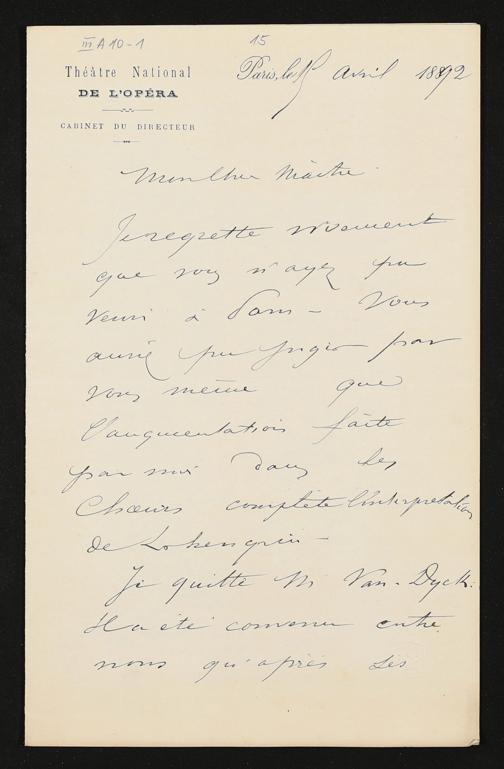 III A 10-1
15
Théâtre National
DE L'OPÉRA
CABINET DU DIRECTEUR
Paris, le 15 Avril 1892
Mon Cher Maitre
Je regrette vivement
que vous n'ayez pu
venir à Paris - Vous
auriez pu juger par
vous même que
l'augmentation faite
par moi dans les
Chœurs complète l'interprétation
de Lohengrin -
Je quitte M Van-Dyck.
Il a été convenu entre
nous qu'après ses